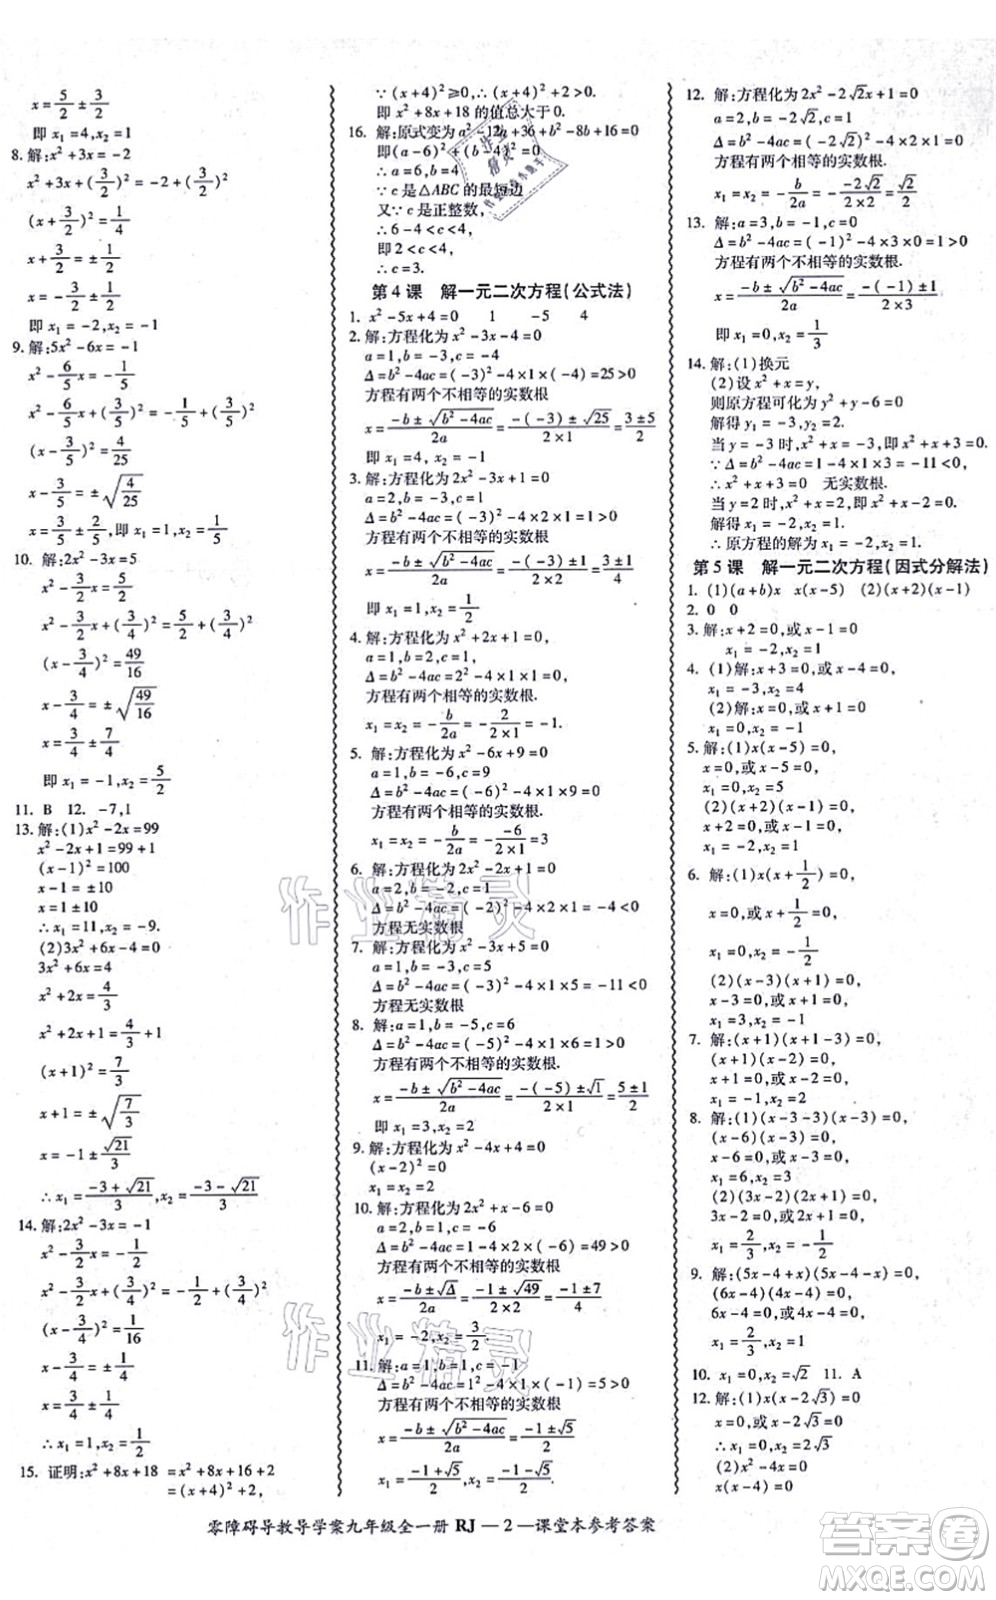 x=5/2±3/2
即x₁=4,x₂=1
8. 解:x²+3x=-2
x²+3x+(3/2)²=-2+(3/2)²
(x+3/2)²=1/4
x+3/2=±1/2
即x₁=-2,x₂=-1
9. 解:5x²-6x=-1
x²-6/5x=-1/5
x²-6/5x+(3/5)²=-1/5+(3/5)²
(x-3/5)²=4/25
x-3/5=±√(4/25)
x=3/5±2/5,即x₁=1,x₂=1/5
10. 解:2x²-3x=5
x²-3/2x=5/2
x²-3/2x+(3/4)²=5/2+(3/4)²
(x-3/4)²=49/16
x-3/4=±√(49/16)
x=3/4±7/4
即x₁=-1,x₂=5/2
11. B 12. -7,1
13. 解:(1)x²-2x=99
x²-2x+1=99+1
(x-1)²=100
x-1=±10
x=1±10
∴x₁=11,x₂=-9.
(2)3x²+6x-4=0
3x²+6x=4
x²+2x=4/3
x²+2x+1=4/3+1
(x+1)²=7/3
x+1=±√(7/3)
x=-1±√21/3
∴x₁=(-3+√21)/3,x₂=(-3-√21)/3
14. 解:2x²-3x=-1
x²-3/2x=-1/2
x²-3/2x+(3/4)²=-1/2+(3/4)²
(x-3/4)²=1/16
x-3/4=±1/4
x=3/4±1/4
∴x₁=1,x₂=1/2
15. 证明:x²+8x+18=x²+8x+16+2
=(x+4)²+2,
∵(x+4)²≥0,∴(x+4)²+2>0.
即x²+8x+18的值总大于0.
16. 解:原式变为a²-12a+36+b²-8b+16=0
即(a-6)²+(b-4)²=0
∴a=6,b=4
∵c是△ABC的最短边
又∵c是正整数,
∴6-4<c<4,
即2<c<4,
∴c=3.
第4课 解一元二次方程(公式法)
1. x²-5x+4=0 1 -5 4
2. 解:方程化为x²-3x-4=0
a=1,b=-3,c=-4
Δ=b²-4ac=(-3)²-4×1×(-4)=25>0
方程有两个不相等的实数根
x=(-b±√(b²-4ac))/2a=(-(-3)±√25)/(2×1)=(3±5)/2
即x₁=4,x₂=-1
3. 解:方程化为2x²-3x+1=0
a=2,b=-3,c=1
Δ=b²-4ac=(-3)²-4×2×1=1>0
方程有两个不相等的实数根
x=(-b±√(b²-4ac))/2a=(-(-3)±√1)/(2×2)=(3±1)/4
即x₁=1,x₂=1/2
4. 解:方程化为x²+2x+1=0
a=1,b=2,c=1
Δ=b²-4ac=2²-4×1×1=0,
方程有两个相等的实数根.
x₁=x₂=-b/2a=-2/(2×1)=-1.
5. 解:方程化为x²-6x+9=0
a=1,b=-6,c=9
Δ=b²-4ac=(-6)²-4×1×9=0
方程有两个相等的实数根.
x₁=x₂=-b/2a=-(-6)/(2×1)=3
6. 解:方程化为4x²-2x+1=0
a=4,b=-2,c=1
Δ=b²-4ac=(-2)²-4×4×1=-12<0
方程无实数根
7. 解:方程化为x²-3x+5=0
a=1,b=-3,c=5
Δ=b²-4ac=(-3)²-4×1×5=-11<0
方程无实数根
8. 解:a=1,b=-5,c=6
Δ=b²-4ac=(-5)²-4×1×6=1>0
方程有两个不相等的实数根.
x=(-b±√(b²-4ac))/2a=(-(-5)±√1)/(2×1)=(5±1)/2
即x₁=3,x₂=2
9. 解:方程化为x²-4x+4=0
(x-2)²=0
x₁=x₂=2
10. 解:方程化为2x²+x-6=0
a=2,b=1,c=-6
Δ=b²-4ac=1²-4×2×(-6)=49>0
方程有两个不相等的实数根
x=(-b±√Δ)/2a=(-1±√49)/(2×2)=(-1±7)/4
x₁=-2,x₂=3/2.
11. 解:a=1,b=1,c=-1
Δ=b²-4ac=1²-4×1×(-1)=5>0
方程有两个不相等的实数根
x=(-b±√(b²-4ac))/2a=(-1±√5)/(2×1)=(-1±√5)/2
x₁=(-1+√5)/2,x₂=(-1-√5)/2
12. 解:方程化为2x²-2√2x+1=0
a=2,b=-2√2,c=1
Δ=b²-4ac=(-2√2)²-4×2×1=0
方程有两个相等的实数根.
x₁=x₂=-b/2a=-(-2√2)/(2×2)=√2/2
13. 解:a=3,b=-1,c=0
Δ=b²-4ac=(-1)²-4×3×0=1>0
方程有两个不相等的实数根.
x=(-b±√(b²-4ac))/2a=(-(-1)±√1)/(2×3)
即x₁=0,x₂=1/3
14. 解:(1)换元
(2)设x²+x=y,
则原方程可化为y²+y-6=0
解得y₁=-3,y₂=2.
当y=-3时,x²+x=-3,即x²+x+3=0
∵Δ=b²-4ac=1²-4×1×3=-11<0
∴x²+x+3=0 无实数根.
当y=2时,x²+x=2,即x²+x-2=0
解得x₁=-2,x₂=1.
∴原方程的解为x₁=-2,x₂=1.
第5课 解一元二次方程(因式分解法)
1. (1)(a+b)x x(x-5) (2)(x+2)(x-1)
2. 0 0
3. 解:x+2=0,或x-1=0
x₁=-2,x₂=1
4. (1)解:x+3=0,或x-4=0
x₁=-3,x₂=4
(2)解:x=0,或x-1=0
x₁=0,x₂=1
5. 解:(1)x(x-5)=0
x=0,或x-5=0
x₁=0,x₂=5
(2)(x+2)(x-2)=0
x+2=0,或x-2=0
x₁=-2,x₂=2
6. 解:(1)x(x+1/2)=0
x=0,或x+1/2=0
x₁=0,x₂=-1/2
(2)(x-3)(x+1)=0
x-3=0,或x+1=0
x₁=3,x₂=-1
7. 解:(x+1)(x+1-3)=0,
(x+1)(x-2)=0
x+1=0,或x-2=0
x₁=-1,x₂=2
8. 解:(1)(x-3-3)(x-3)=0,
(x-6)(x-3)=0
x-6=0,或x-3=0
x₁=6,x₂=3
(2)(3x-2)(2x+1)=0
3x-2=0,或2x+1=0
x₁=2/3,x₂=-1/2
9. 解:(5x-4+x)(5x-4-x)=0,
(6x-4)(4x-4)=0,
6x-4=0,或4x-4=0
x₁=2/3,x₂=1
10. x₁=0,x₂=√2 11. A
12. 解:(1)x(x-2√3)=0,
x=0,或x-2√3=0
∴x₁=0,x₂=2√3
(2)x²-4x=0
x(x-4)=0
零障碍导教导学案九年级全一册 RJ—2—课堂本参考答案
作业精灵
作业精灵
答案圈
MXQE.COM